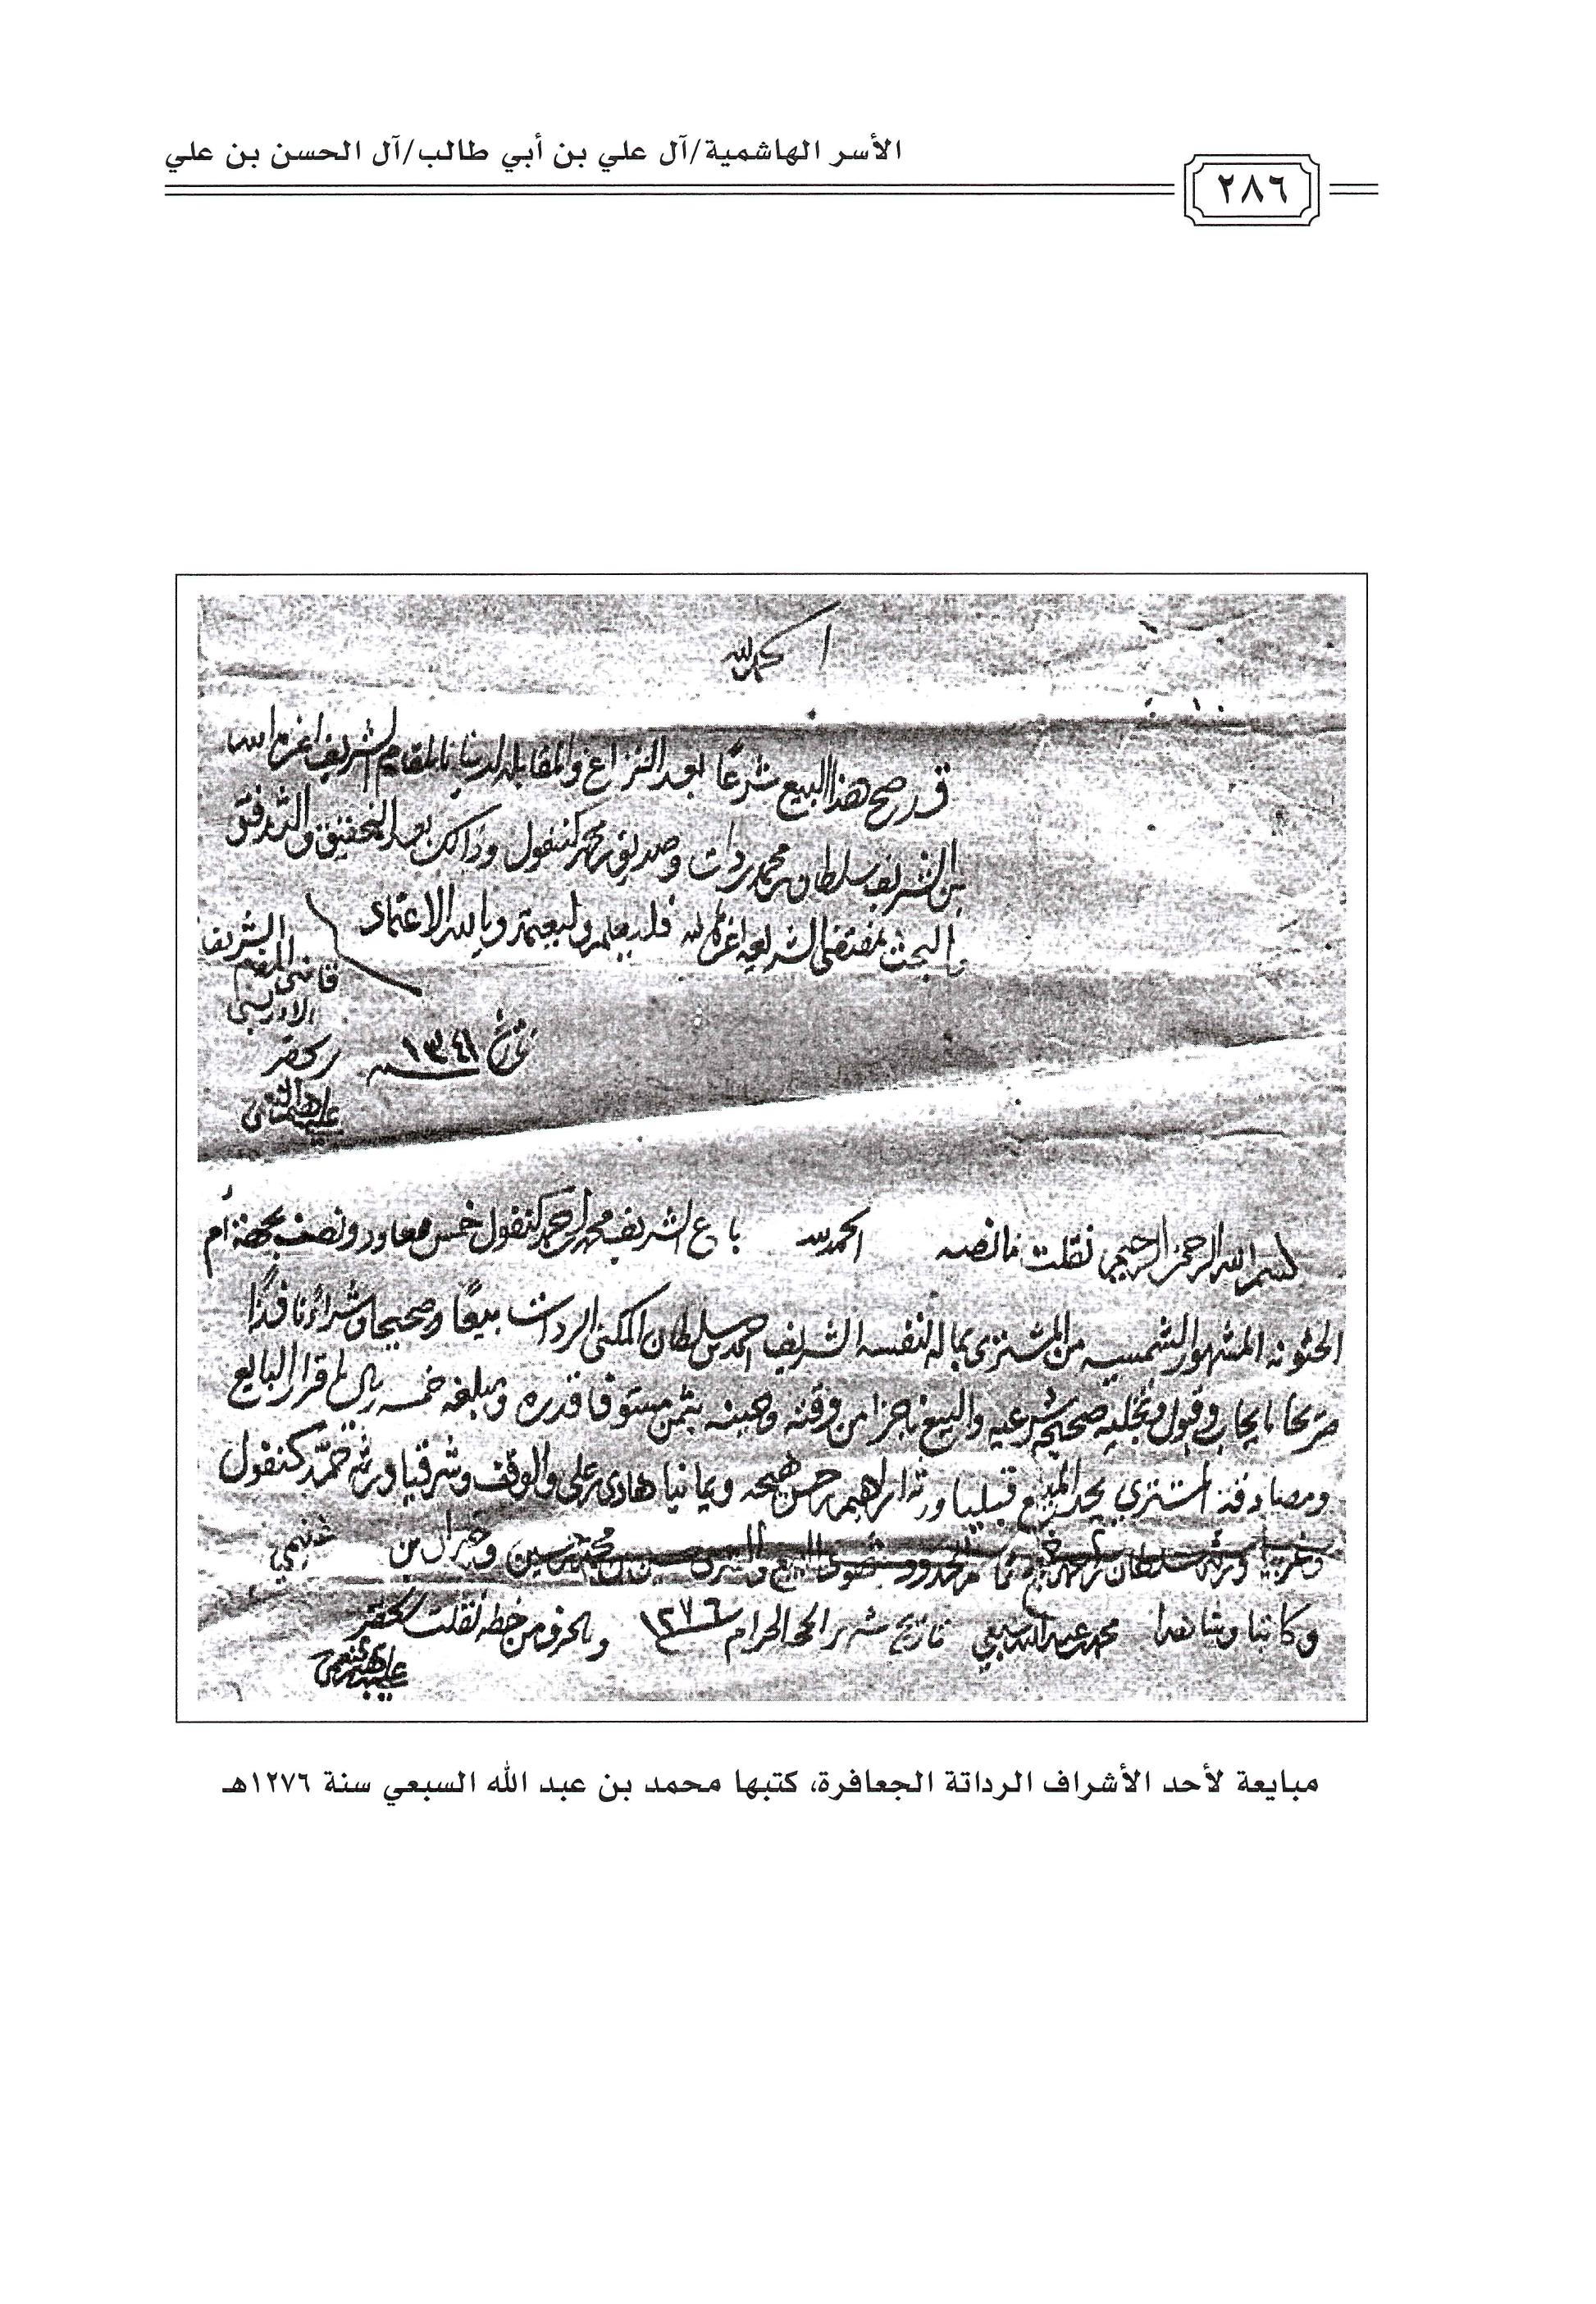 الأسر الهاشمية/آل علي بن أبي طالب/آل الحسن بن علي
٢٨٦
الحمد لله
قد صح هذا البيع شرعًا بعد النزاع والمقابله لدينا بالمقام الشريف اعزه الله
بن الشريف سلطان محمد ردات وصديق محمد كنفول وذالك بعد التحقيق والتدقق
والبحث بمقتضى الشريعه اعزها الله فليعلم وليعتمد وبالله الاعتماد
قاضي المقام الشريف
الادريسي
تاريخ ١٣٤١
بسم الله الرحمن الرحيم نقلت ما نصه الحمد لله باع الشريف محمد احمد كنفول خمس معاود ونصف بجهة ام
الحثونه المشهور الشمسيه من المشتري بماله لنفسه الشريف احمد بن سلطان المكنى الردات بيعًا وصحيحا وشراءً نافذًا
صريحا بايجاب وقبول وتخليه صحيحه شرعيه والبيع ناجزا من وقته وحينه بثمن مستوفا قدره ومبلغه خمسه ريال باقرار البايع
ومصادقة المشتري يحد المبيع قبليا ورثة ابراهيم حسن هيجه ويمانيا هادي علي والوقف وشرقيا ورثة حمد كنفول
وغربيا ورثة سلطان
وكاتبا وشاهدا محمد عبد الله سبعي تاريخ شهر الحجه الحرام ١٢٧٦ وبالحرف من خطه نقلت
مبايعة لأحد الأشراف الرداتة الجعافرة، كتبها محمد بن عبد الله السبعي سنة ١٢٧٦هـ